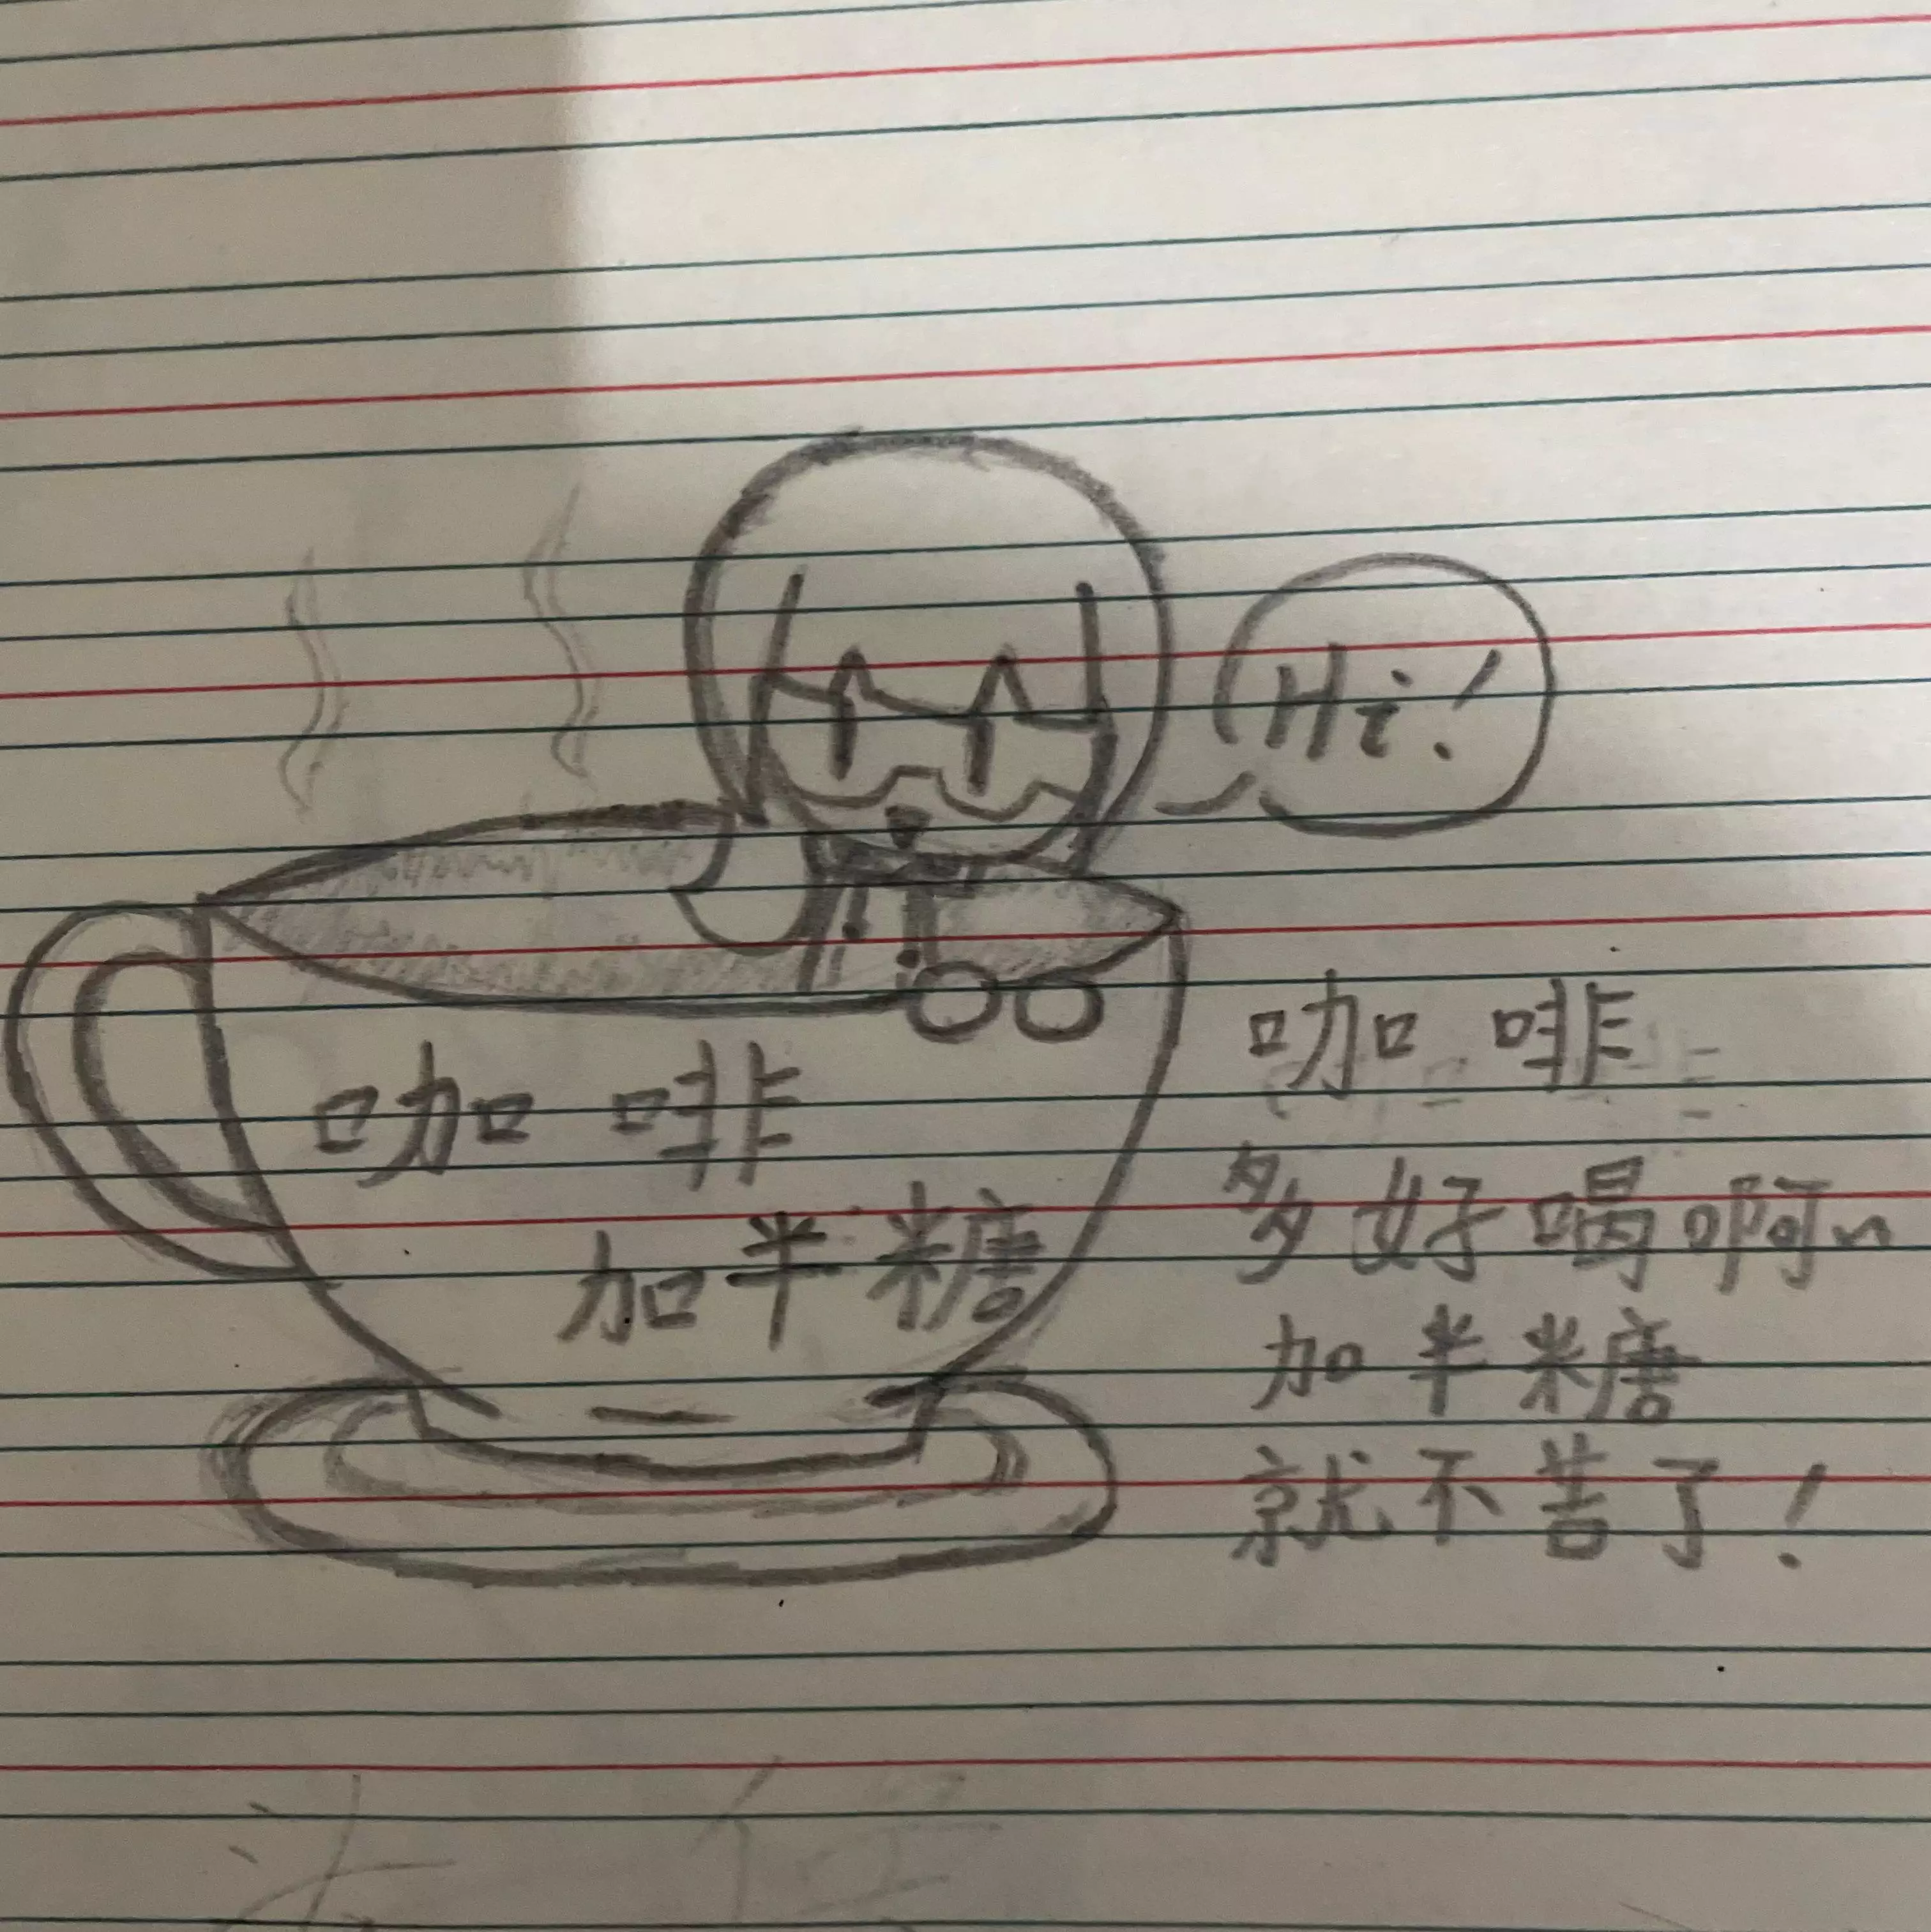 Hi!
咖啡
加半糖
咖啡
多好喝啊~
加半糖
就不苦了!